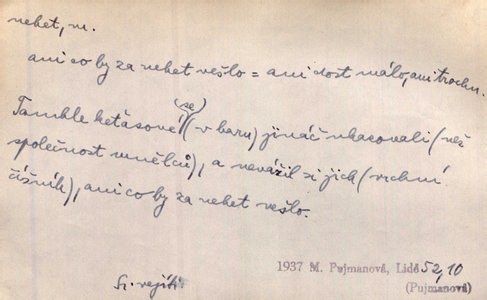 nehet, m.
ani co by za nehet vešlo = ani dost málo, ani trochu.
Tamhle keťasové (se) (v baru) jináč ukazovali (než
společnost umělců), a nevážil si jich (vrchní
číšník), ani co by za nehet vešlo.
1937 M. Pujmanová, Lidé 52,10
(Pujmanová)